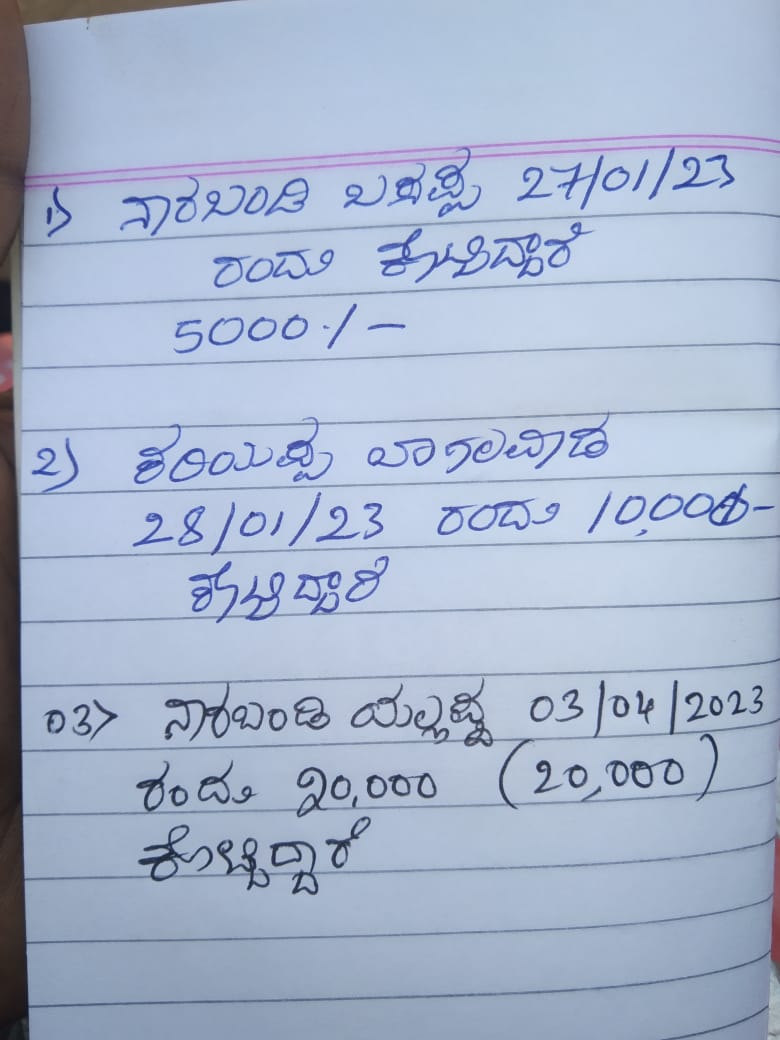 1) ನಾರಬಂಡಿ ಬಸಪ್ಪ 27/01/23
ರಂದು ಕೊಟ್ಟಿದ್ದಾರೆ
5000·/-
2) ಕರಿಯಪ್ಪ ಬಾಗಲವಾಡ
28/01/23 ರಂದು 10,000/-
ಕೊಟ್ಟಿದ್ದಾರೆ
03> ನಾರಬಂಡಿ ಯಲ್ಲಪ್ಪ 03/04/2023
ರಂದು ೨0,000 (20,000)
ಕೊಟ್ಟಿದ್ದಾರೆ